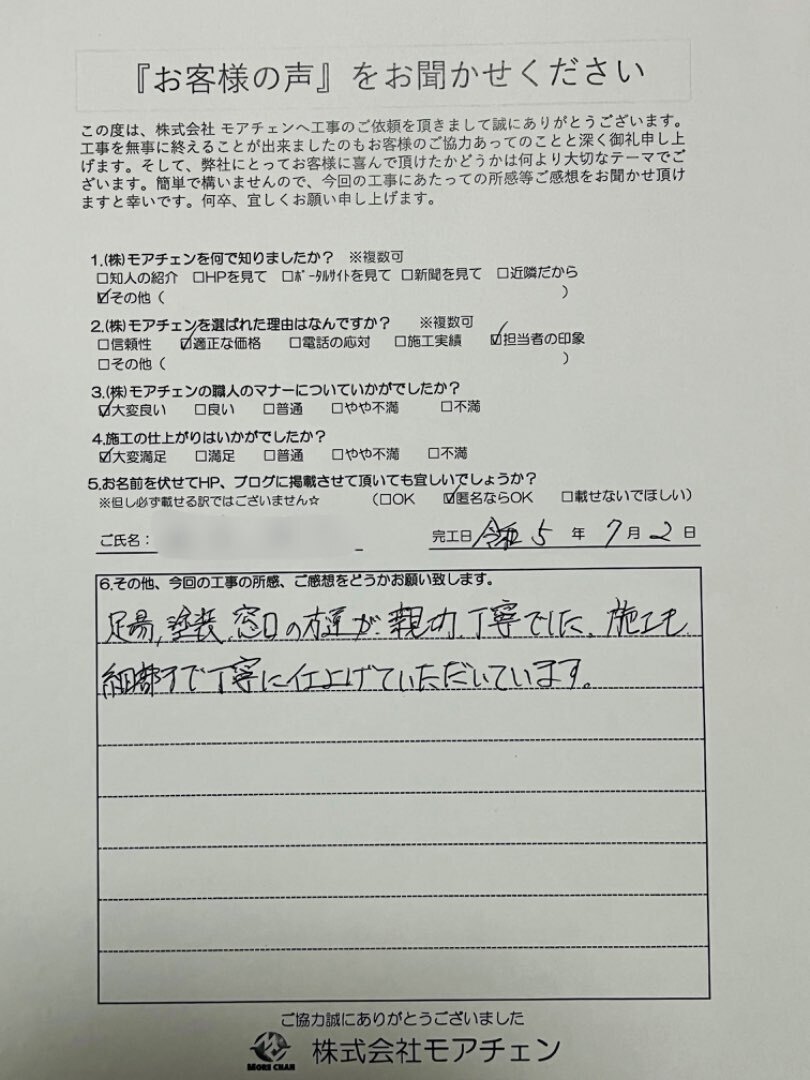 『お客様の声』をお聞かせください
この度は、株式会社 モアチェンへ工事のご依頼を頂きまして誠にありがとうございます。
工事を無事に終えることが出来ましたのもお客様のご協力あってのことと深く御礼申し上
げます。そして、弊社にとってお客様に喜んで頂けたかどうかは何より大切なテーマでご
ざいます。簡単で構いませんので、今回の工事にあたっての所感等ご感想をお聞かせ頂け
ますと幸いです。何卒、宜しくお願い申し上げます。
1.(株)モアチェンを何で知りましたか？ ※複数可
□知人の紹介 □HPを見て □ﾎﾟｰﾀﾙｻｲﾄを見て □新聞を見て □近隣だから
☑その他（ ）
2.(株)モアチェンを選ばれた理由はなんですか？ ※複数可
□信頼性 ☑適正な価格 □電話の応対 □施工実績 ☑担当者の印象
□その他（ ）
3.(株)モアチェンの職人のマナーについていかがでしたか？
☑大変良い □良い □普通 □やや不満 □不満
4.施工の仕上がりはいかがでしたか？
☑大変満足 □満足 □普通 □やや不満 □不満
5.お名前を伏せてHP、ブログに掲載させて頂いても宜しいでしょうか？
※但し必ず載せる訳ではございません☆ （□OK ☑匿名ならOK □載せないでほしい）
ご氏名： 完工日 令和 5 年 7月 2 日
6.その他、今回の工事の所感、ご感想をどうかお願い致します。
足場,塗装,窓口の方達が、親切、丁寧でした、施工も
細部まで丁寧に仕上げていただいています。
ご協力誠にありがとうございました
MORE CHAN 株式会社モアチェン